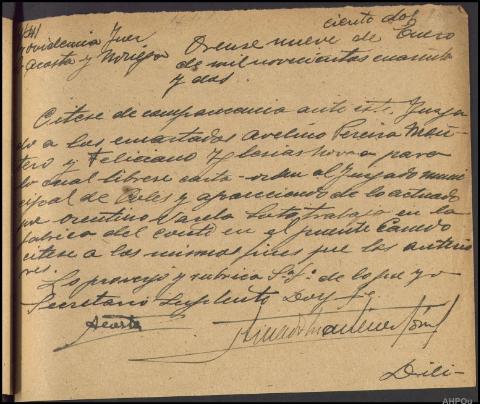 ciento dos
Providencia Juez
Acosta y Noriega
Orense nueve de Enero
de mil novecientos cuarenta
y dos.
Citese de comparecencia ante este Juzga
do a los encartados Avelino Pereira Mon
tero y Feliciano Iglesias para
lo cual librese carta-orden al Juzgado muni
cipal de Coles y apareciendo de lo actuado
que Orentino Varela trabaja en la
fabrica del en el puente Canedo
citese a los mismos fines que los anterio
res.
Lo proveyó y rubrica S.Sª de lo que yo
Secretario Suplente Doy fe.
Acosta
Dili-
AHPOu